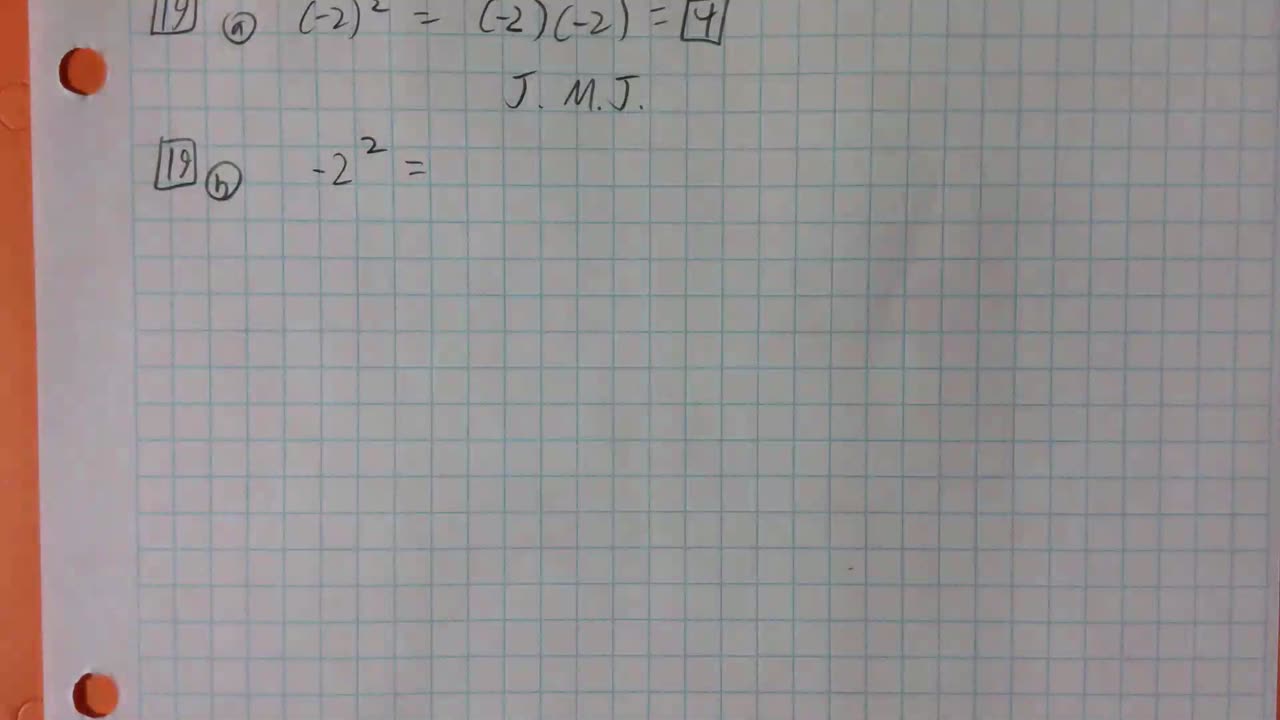 19 a (-2)² = (-2)(-2) = 4
J. M. J.
19 b -2² =